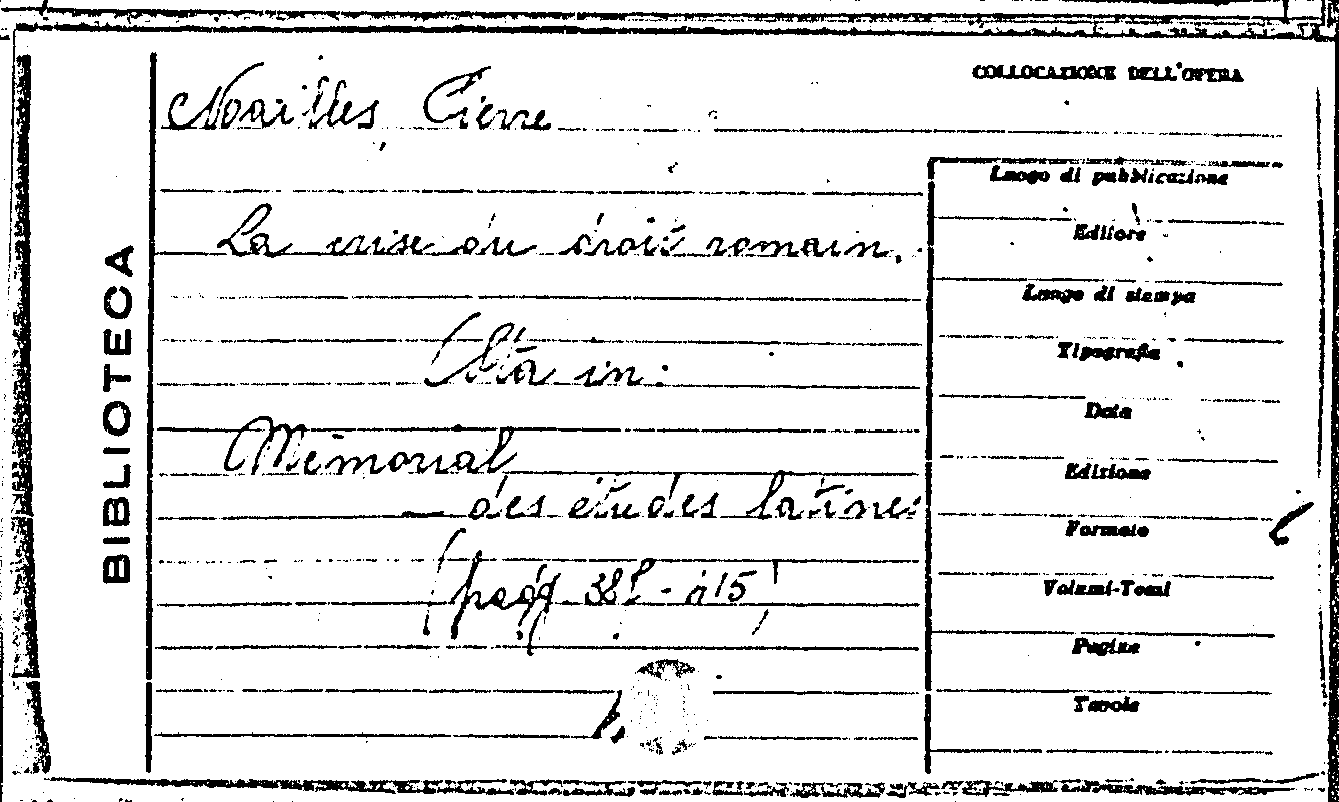 COLLOCAZIONE DELL'OPERA
Noailles Pierre
La crise du droit romain.
(Sta in:
Mémorial
des études latines
(pagg.
BIBLIOTECA
Luogo di pubblicazione
Editore
Luogo di stampa
Tipografia
Data
Edizione
Formato
Volumi-Tomi
Pagine
Tavole